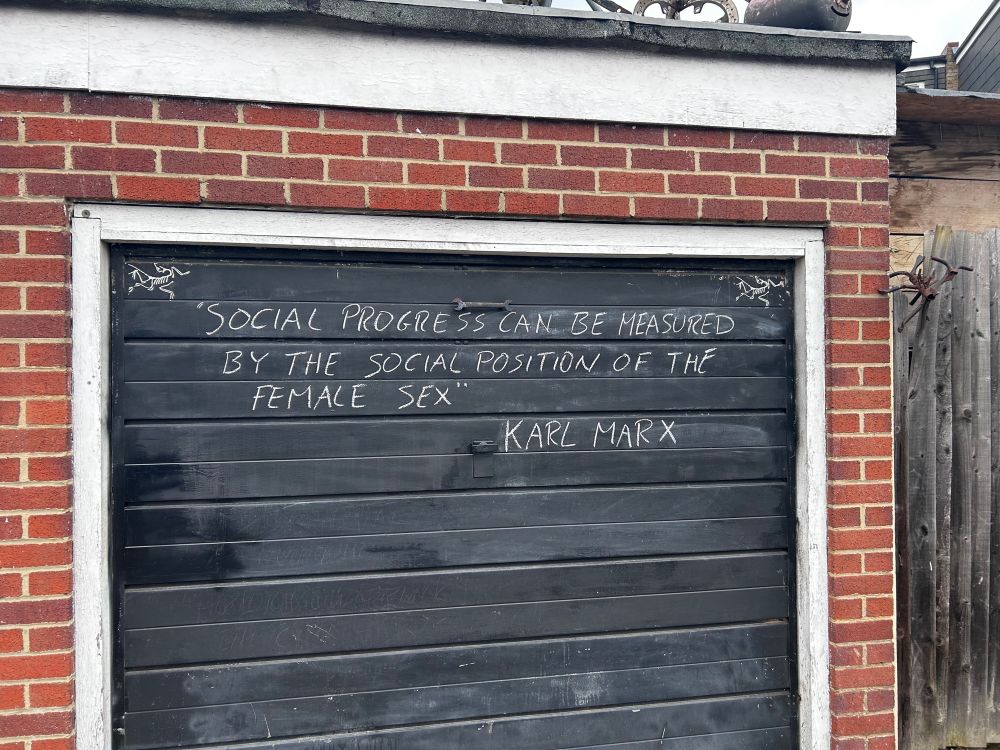 "SOCIAL PROGRESS CAN BE MEASURED
BY THE SOCIAL POSITION OF THE
FEMALE SEX"
KARL MARX